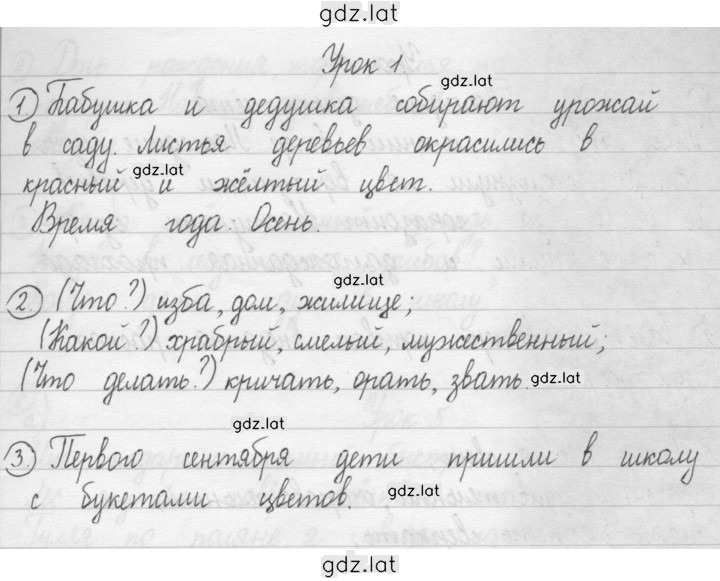 gdz.lat
Урок 1
gdz.lat
1) Бабушка и дедушка собирают урожай
в саду. Листья деревьев окрасились в
gdz.lat
красный и жёлтый цвет.
Время года. Осень.
gdz.lat
2. (Что?) изба, дом, жилище;
(Какой?) храбрый, смелый, мужественный;
(Что делать?) кричать, орать, звать. gdz.lat
gdz.lat
3. Первого сентября дети пришли в школу
с букетами цветов. gdz.lat
gdz.lat